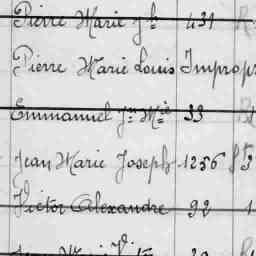 Pierre Marie Jh 431 R
Pierre Marie Louis Impropr
Emmanuel Jn Mie 33
Jean Marie Joseph 1256 St 3
Victor Alexandre 92 1